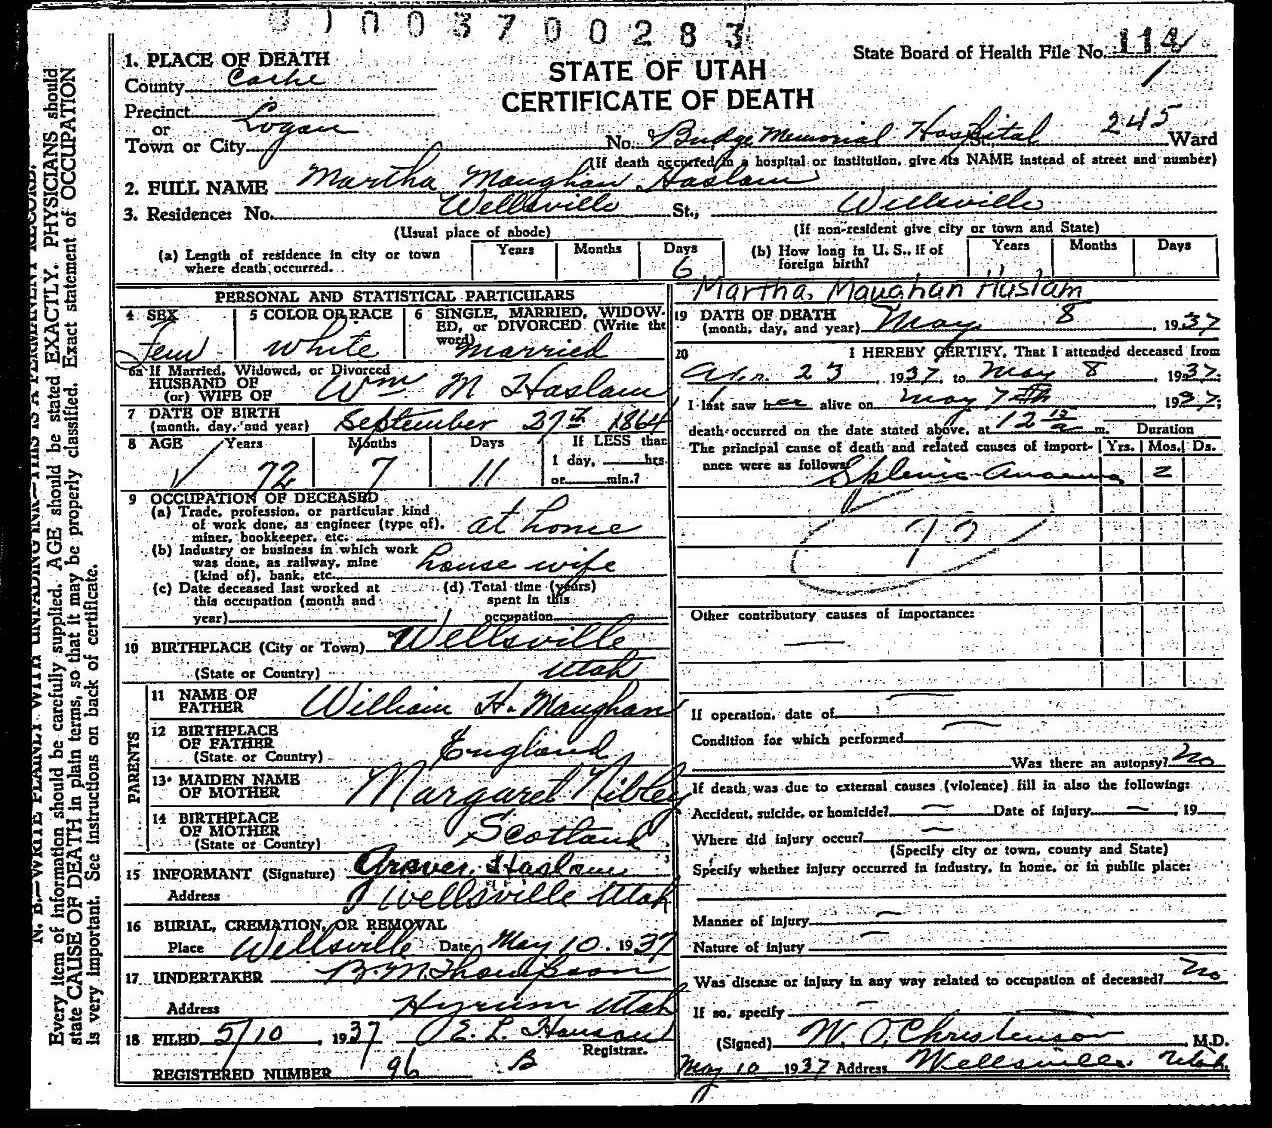 003700283
State Board of Health File No. 114
1
STATE OF UTAH
CERTIFICATE OF DEATH
1. PLACE OF DEATH
County Cache
Precinct
or
Town or City Logan
No. Budge Memorial Hospital St. 245 Ward
(If death occurred in a hospital or institution, give its NAME instead of street and number)
2. FULL NAME Martha Maughan Haslam
3. Residence: No. Wellsville St., Wellsville
(Usual place of abode) (If non-resident give city or town and State)
(a) Length of residence in city or town where death occurred. Years Months Days 6
(b) How long in U. S., if of foreign birth? Years Months Days
PERSONAL AND STATISTICAL PARTICULARS
4 SEX Fem
5 COLOR OR RACE white
6 SINGLE, MARRIED, WIDOWED, or DIVORCED (Write the word) married
6a If Married, Widowed, or Divorced
HUSBAND OF
(or) WIFE OF Wm M Haslam
7 DATE OF BIRTH
(month, day, and year) September 27th 1864
8 AGE Years 72 Months 7 Days 11 If LESS than
1 day, hrs.
or min.?
9 OCCUPATION OF DECEASED
(a) Trade, profession, or particular kind
of work done, as engineer (type of),
miner, bookkeeper, etc. at home
(b) Industry or business in which work
was done, as railway, mine
(kind of), bank, etc. house wife
(c) Date deceased last worked at
this occupation (month and
year)
(d) Total time (years)
spent in this
occupation
10 BIRTHPLACE (City or Town) Wellsville
(State or Country) Utah
PARENTS
11 NAME OF
FATHER William H. Maughan
12 BIRTHPLACE
OF FATHER
(State or Country) England
13 MAIDEN NAME
OF MOTHER Margaret Nibley
14 BIRTHPLACE
OF MOTHER
(State or Country) Scotland
15 INFORMANT (Signature) Grover Haslam
Address Wellsville Utah
16 BURIAL, CREMATION, OR REMOVAL
Place Wellsville Date May 10. 1937
17 UNDERTAKER B. M. Thompson
Address Hyrum Utah
18 FILED 5/10, 1937 E. L. Hanson
Registrar.
REGISTERED NUMBER 96 B
Martha, Maughan Haslam
19 DATE OF DEATH
(month, day, and year) May 8 1937
20 I HEREBY CERTIFY, That I attended deceased from
Apr. 23, 1937, to May 8, 1937;
I last saw her alive on May 7th 1937;
death occurred on the date stated above, at 12 m. Duration
The principal cause of death and related causes of importance were as follows: Yrs. Mos. Ds.
Splenic Anaemia 2
Other contributory causes of importance:
If operation, date of
Condition for which performed
Was there an autopsy? No
If death was due to external causes (violence) fill in also the following:
Accident, suicide, or homicide? Date of injury , 19
Where did injury occur?
(Specify city or town, county and State)
Specify whether injury occurred in industry, in home, or in public place:
Manner of injury
Nature of injury
Was disease or injury in any way related to occupation of deceased? No
If so, specify
(Signed) W. O. Christenson, M.D.
May 10 1937 Address Wellsville Utah.
N. B.—WRITE PLAINLY WITH UNFADING INK—THIS IS A PERMANENT RECORD.
Every item of information should be carefully supplied. AGE should be stated EXACTLY. PHYSICIANS should
state CAUSE OF DEATH in plain terms, so that it may be properly classified. Exact statement of OCCUPATION
is very important. See instructions on back of certificate.